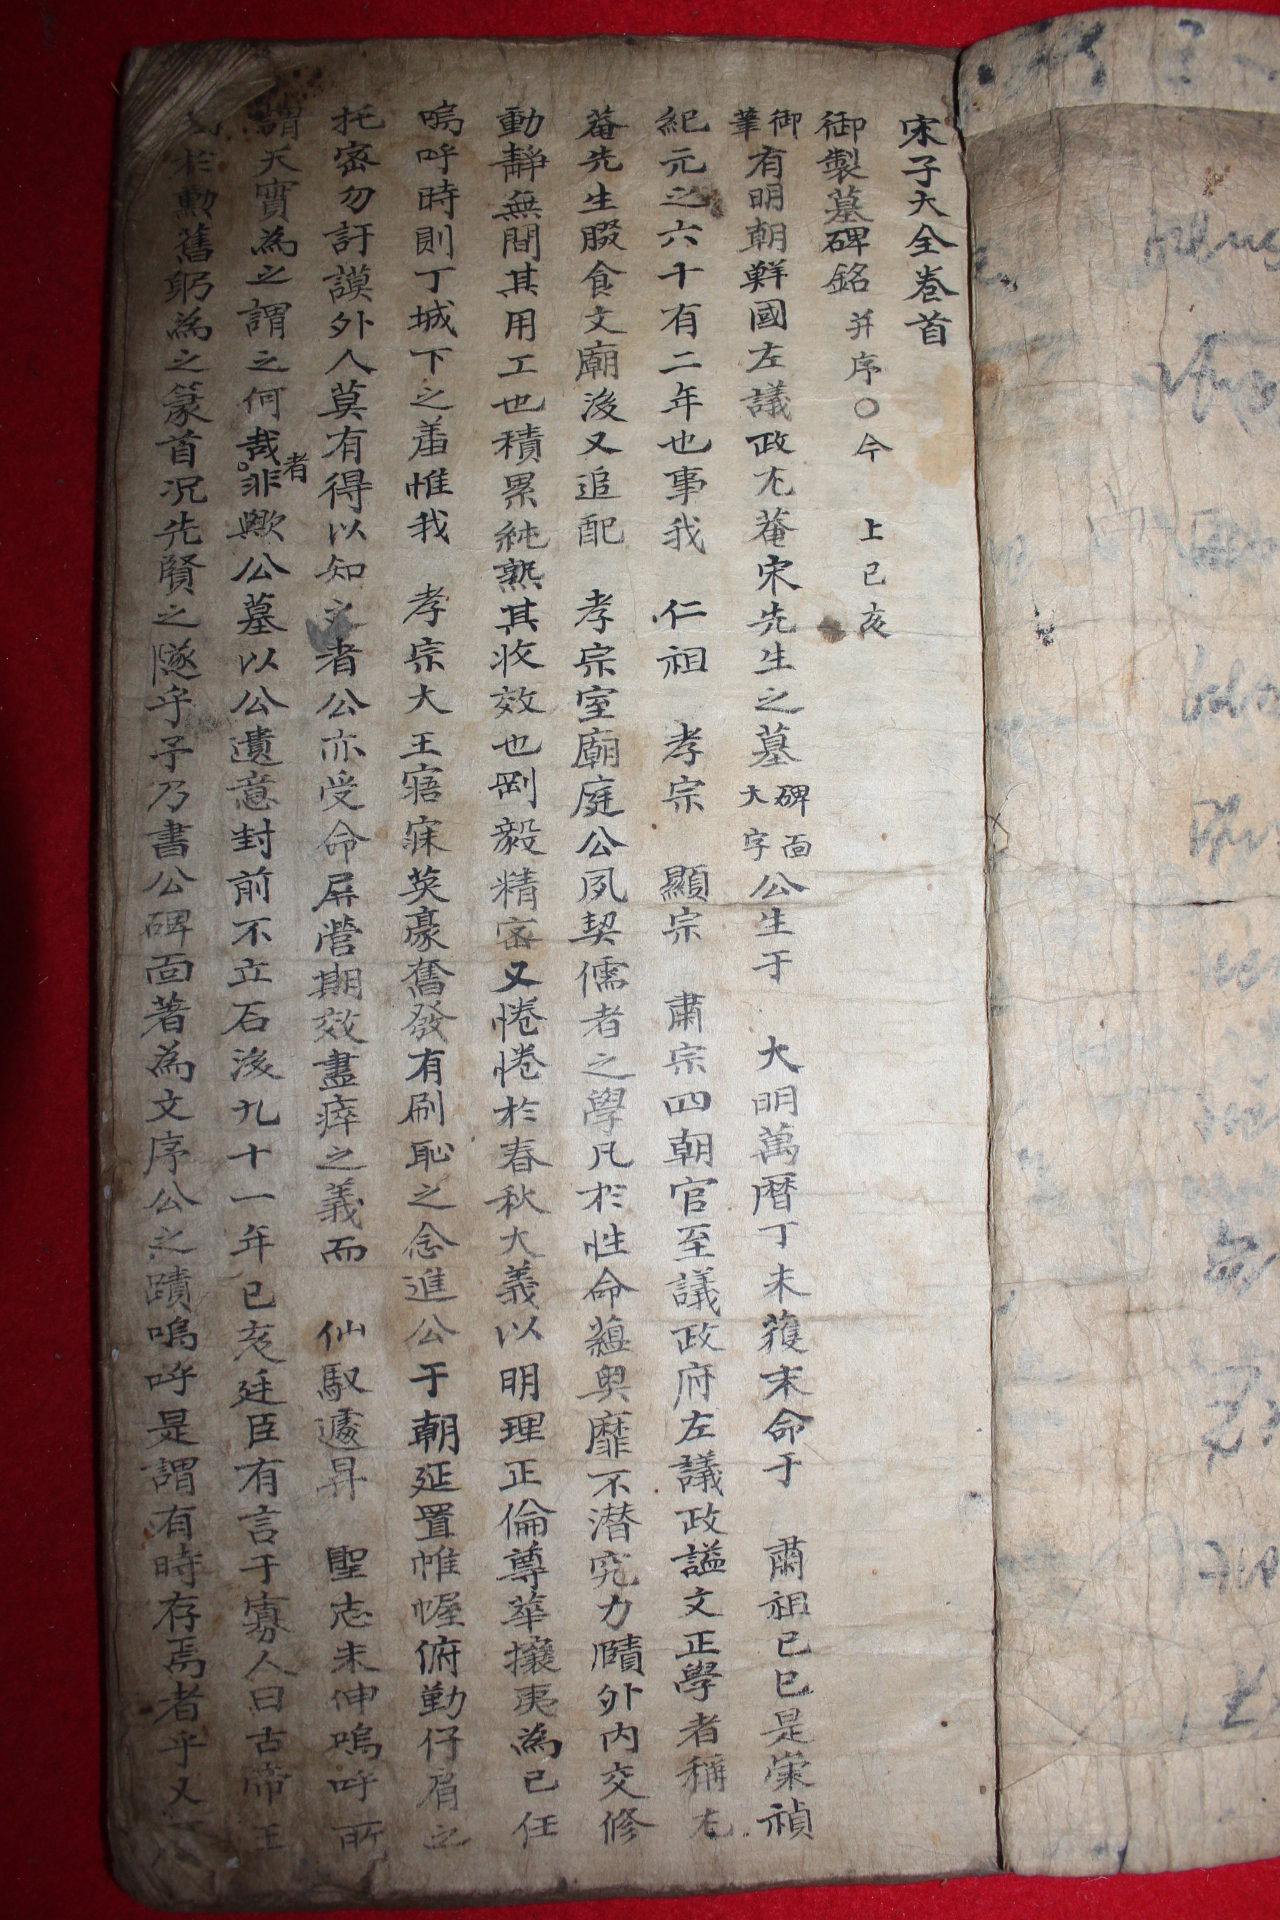 宋子大全卷首
御製墓碑銘 并序○今 上己亥
御筆有明朝鮮國左議政尤菴宋先生之墓碑面大字公生于 大明萬曆丁未獲末命于 肅祖己巳是崇禎
紀元之六十有二年也事我 仁祖 孝宗 顯宗 肅宗四朝官至議政府左議政謚文正學者稱尤
菴先生腏食文廟後又追配 孝宗室廟庭公夙契儒者之學凡於性命蘊奧靡不潛究力賾外內交修
動靜無間其用工也積累純熟其收效也剛毅精密又惓惓於春秋大義以明理正倫尊華攘夷為己任
嗚呼時則丁城下之羞惟我 孝宗大王寤寐英豪奮發有刷恥之念進公于朝延置帷幄俯勤仔肩之
托密勿訏謨外人莫有得以知之者公亦受命屏營期效盡瘁之義而 仙馭遽昇 聖志未伸嗚呼所
謂天實為之謂之何哉者非歟公墓以公遺意封前不立石後九十一年己亥廷臣有言于寡人曰古帝王
於勳舊躬為之篆首況先賢之隧乎予乃書公碑面著為文序公之蹟嗚呼是謂有時存焉者乎又